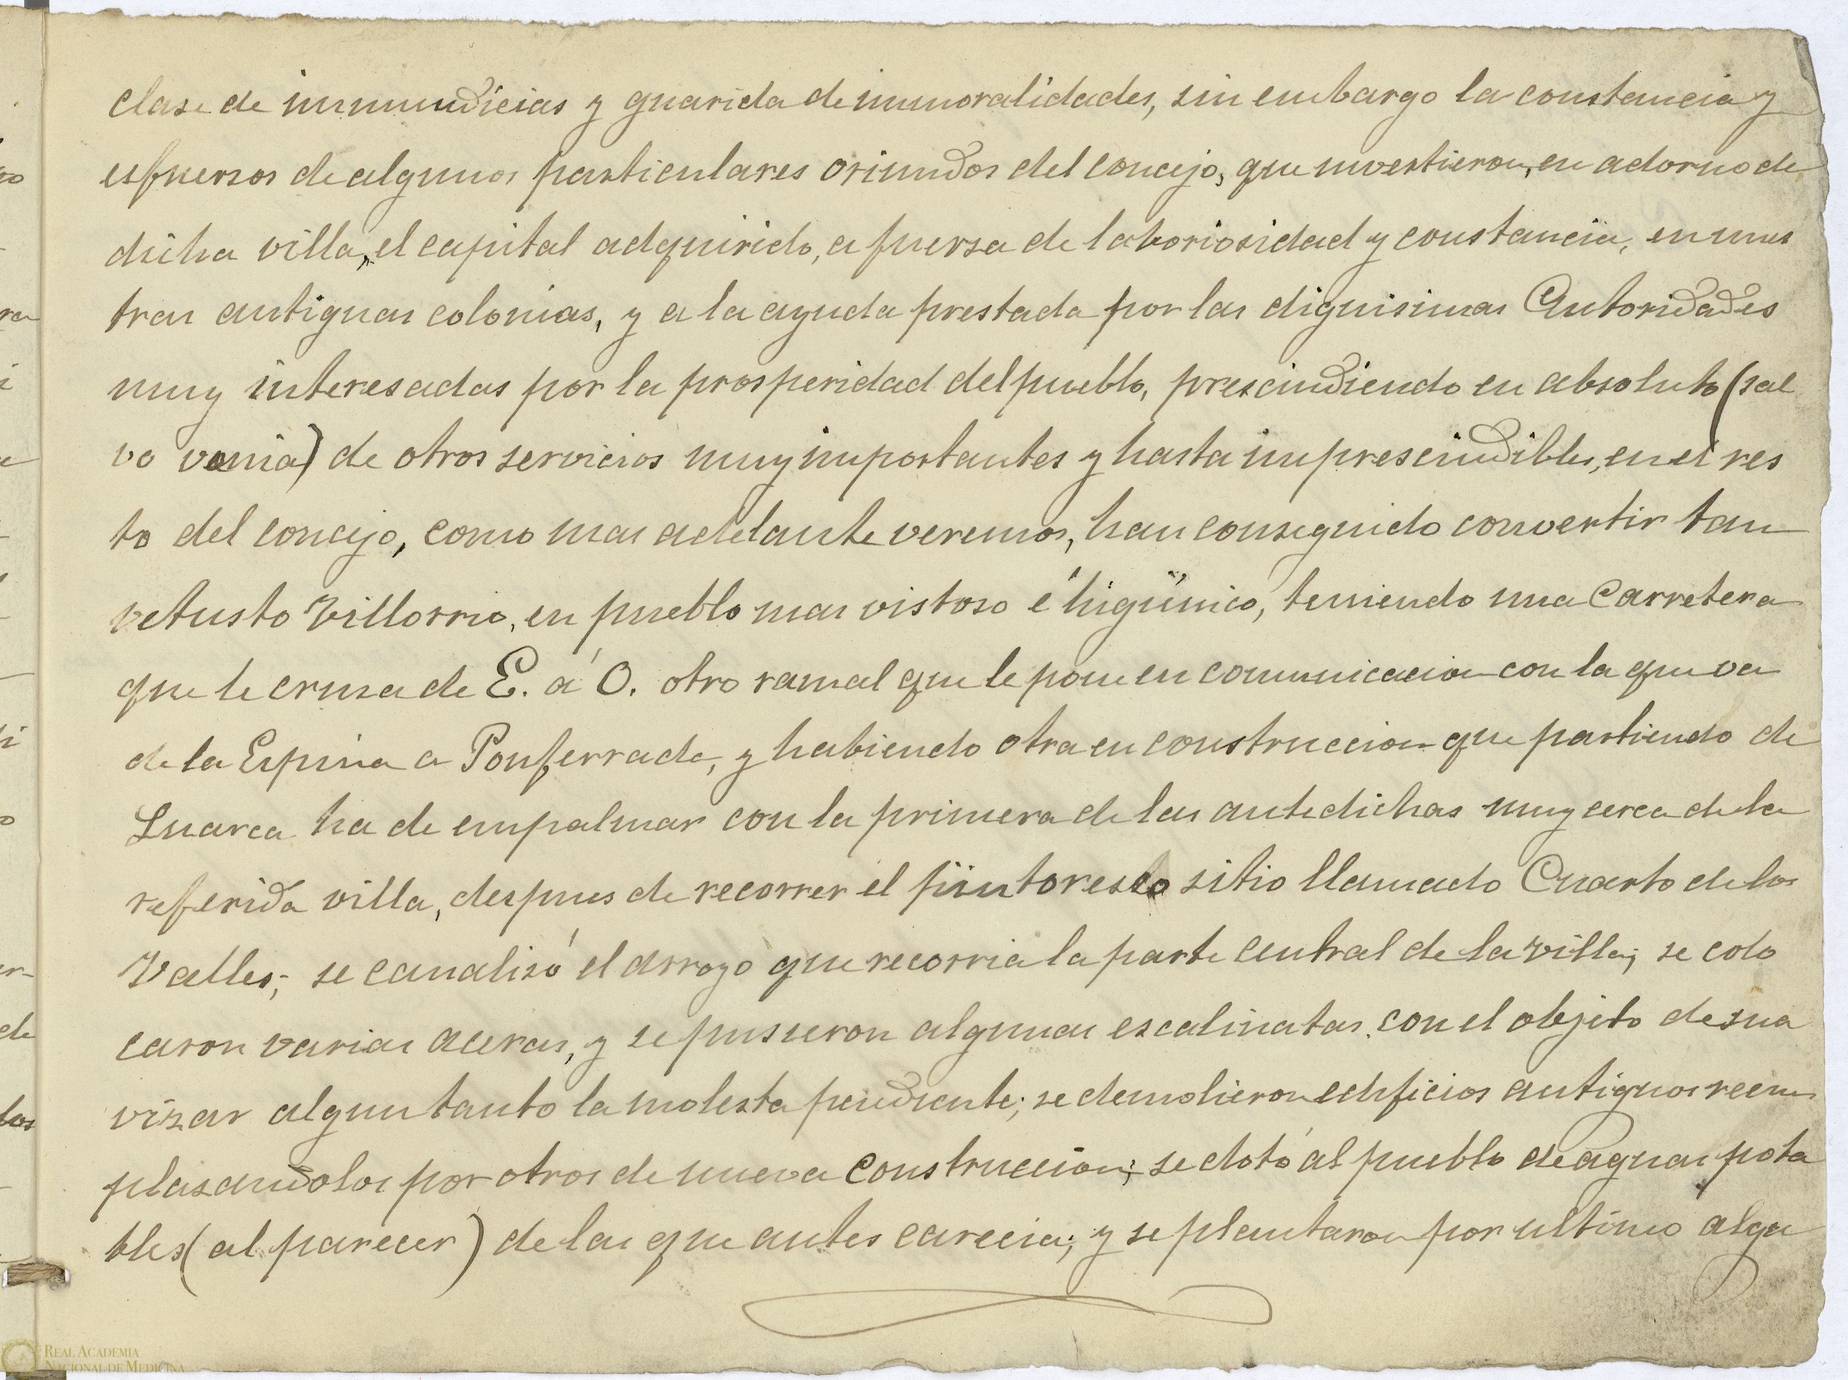 clase de inmundicias y guarida de inmoralidades, sin embargo la constancia y
esfuersos de algunos particulares oriundos del concejo, que invertieron, en adorno de
dicha villa, el capital adquirido, a fuersa de laboriosidad y constancia, en nues
tras antiguas colonias, y a la ayuda prestada por las dignisimas Autoridades
muy interesadas por la prosperidad del pueblo, prescindiendo en absoluto (sal
vo venia) de otros servicios muy importantes y hasta imprescindibles, en el res
to del concejo, como mas adelante veremos, han conseguido convertir tan
vetusto Villorrio, en pueblo mas vistoso é higiénico, teniendo una Carretera
que le crusa de E. á O. otro ramal que le pone en comunicacion con la que va
de la Espina a Ponferrada, y habiendo otra en construccion que partiendo de
Luarca ha de empalmar con la primera de las antedichas muy cerca de la
referida villa, despues de recorrer el pintoresco sitio llamado Cuarto de los
Valles; se canalisó el arroyo que recorria la parte central de la villa; se colo
caron varias aceras, y se pusieron algunas escalinatas, con el objeto de sua
vizar algun tanto la molesta pendiente; se demolieron edificios antiguos reem
plasandolos por otros de nueva construccion; se dotó al pueblo de aguas pota
bles (al parecer) de las que antes carecia; y se plantaron por ultimo algu
REAL ACADEMIA
NACIONAL DE MEDICINA